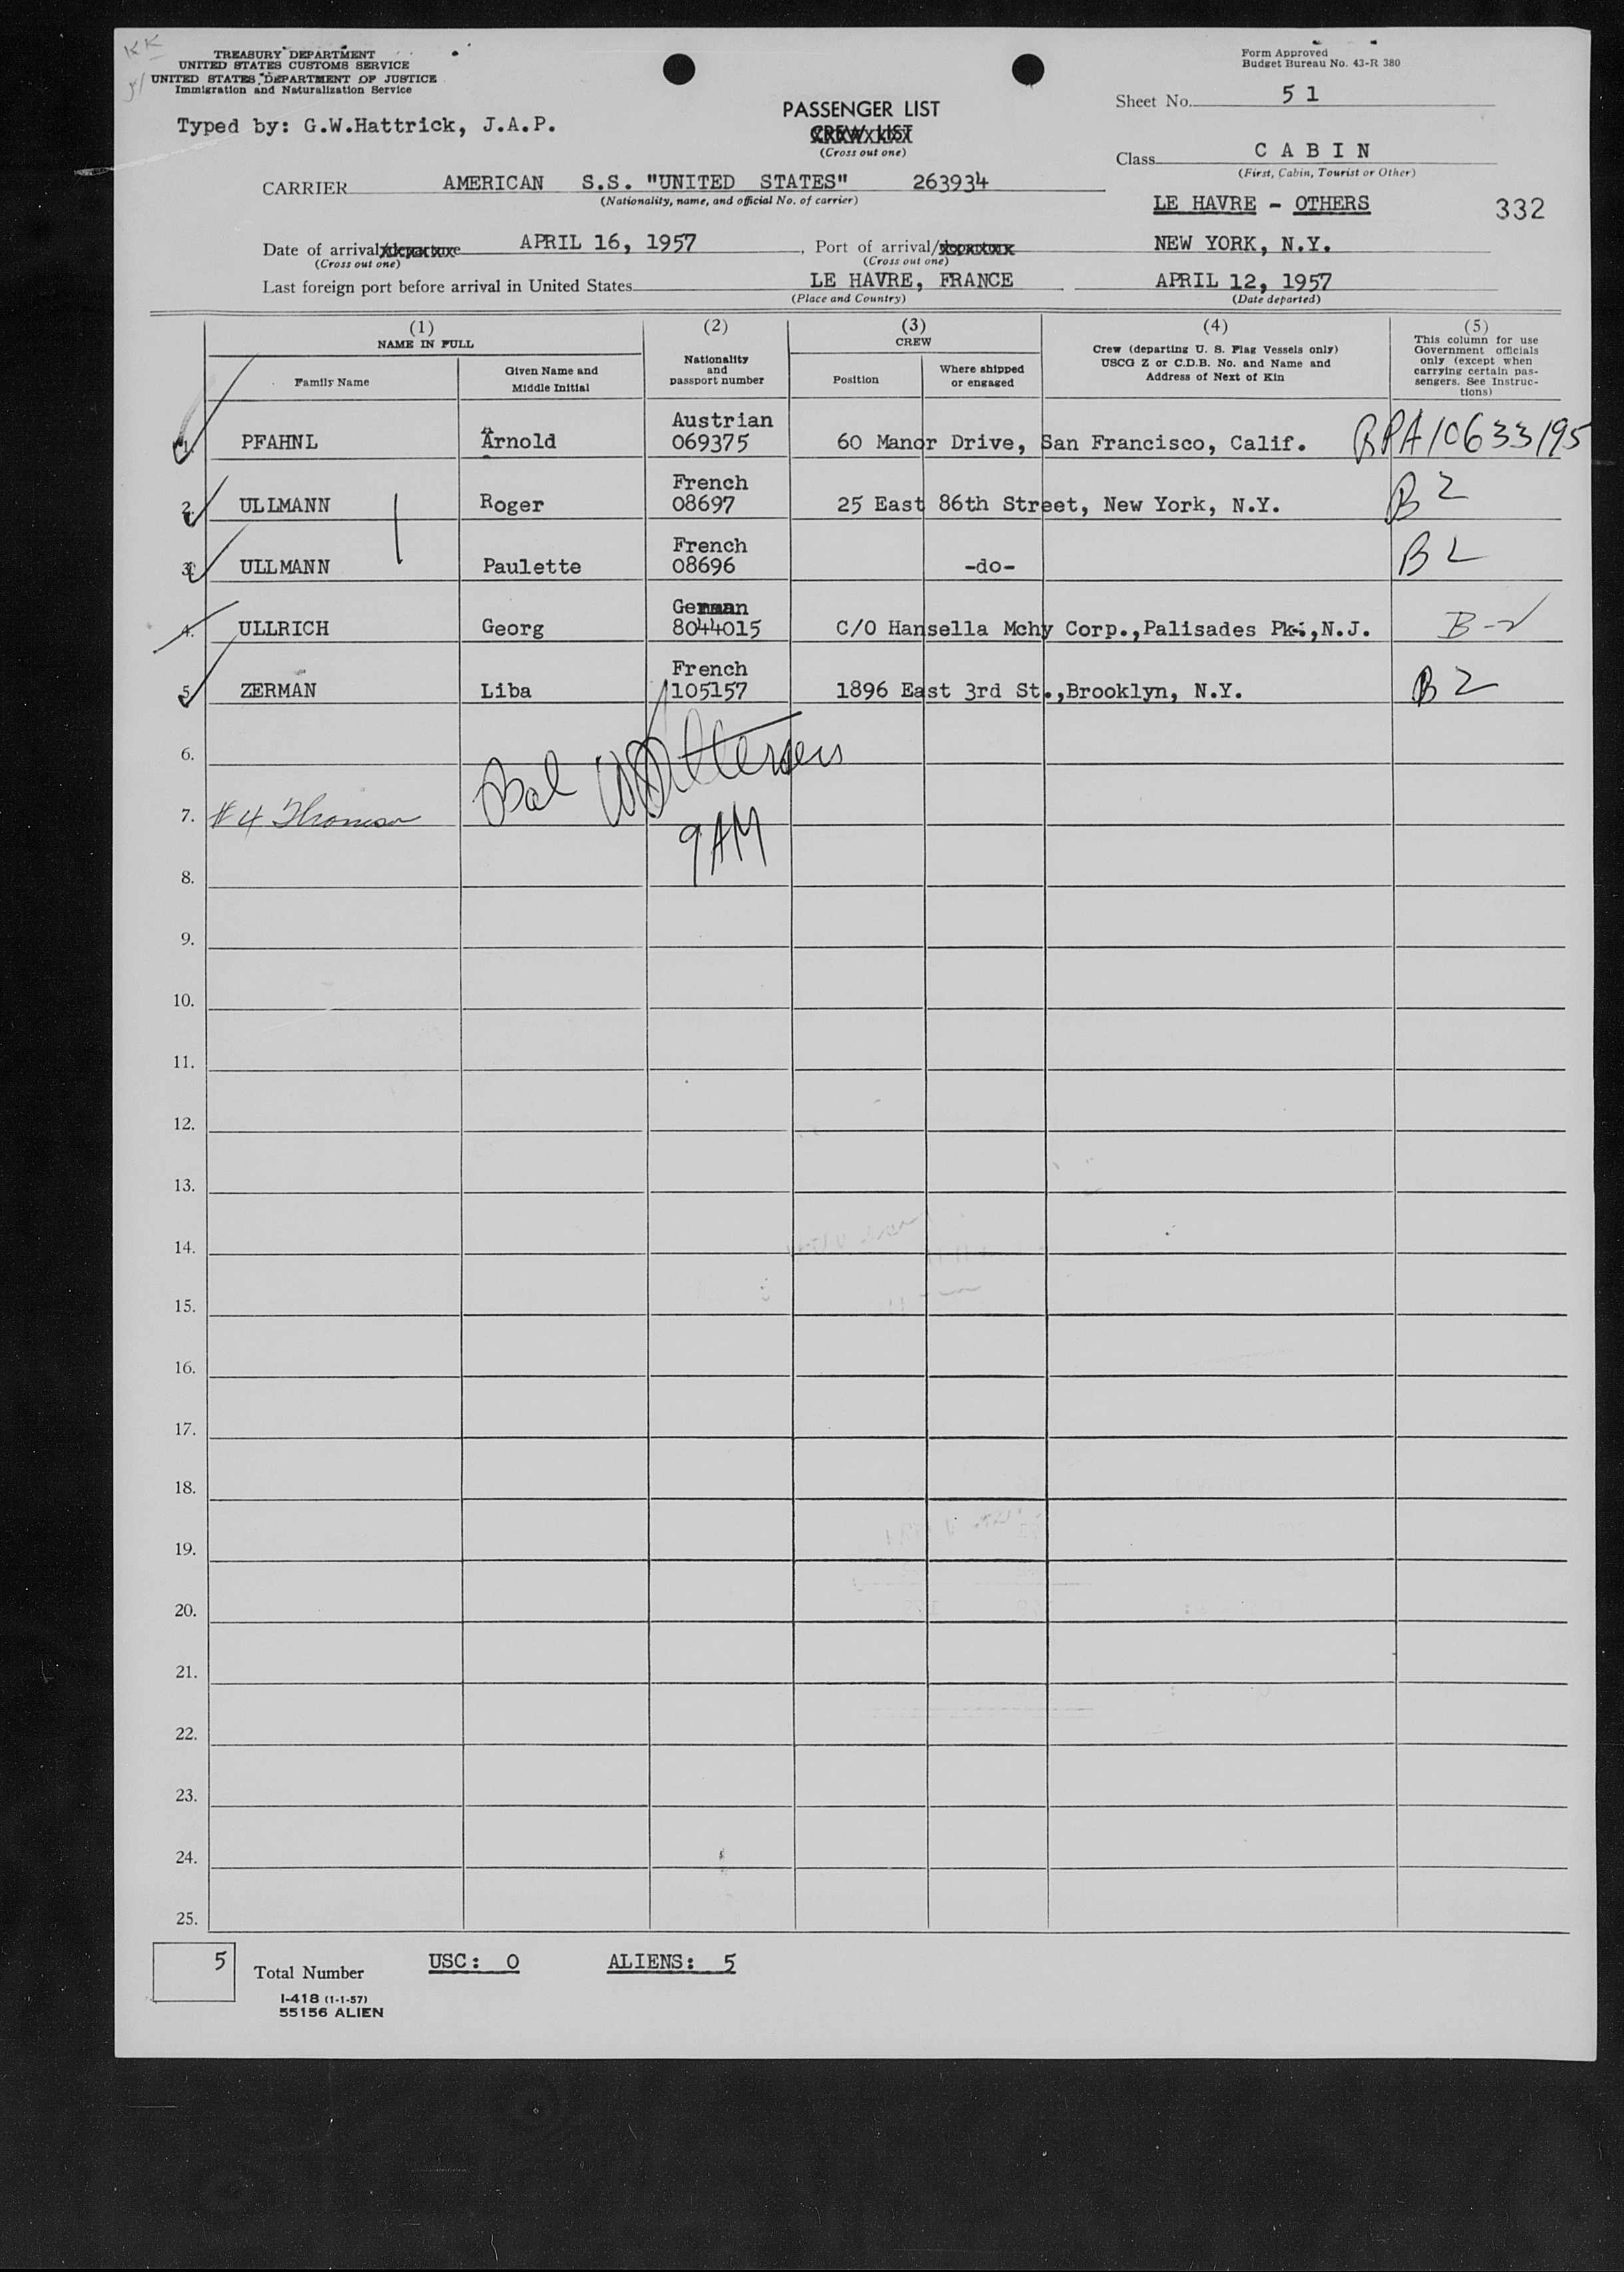 KK
TREASURY DEPARTMENT
UNITED STATES CUSTOMS SERVICE
UNITED STATES DEPARTMENT OF JUSTICE
Immigration and Naturalization Service
Typed by: G.W.Hattrick, J.A.P.
Form Approved
Budget Bureau No. 43-R 380
PASSENGER LIST
CREW LIST
(Cross out one)
Sheet No. 51
Class CABIN
(First, Cabin, Tourist or Other)
CARRIER AMERICAN S.S. "UNITED STATES" 263934
(Nationality, name, and official No. of carrier)
LE HAVRE - OTHERS 332
Date of arrival/departure APRIL 16, 1957, Port of arrival/departure NEW YORK, N.Y.
(Cross out one) (Cross out one)
Last foreign port before arrival in United States LE HAVRE, FRANCE APRIL 12, 1957
(Place and Country) (Date departed)
(1) NAME IN FULL
Family Name
Given Name and Middle Initial
(2) Nationality and passport number
(3) CREW
Position
Where shipped or engaged
(4) Crew (departing U. S. Flag Vessels only) USCG Z or C.D.B. No. and Name and Address of Next of Kin
(5) This column for use Government officials only (except when carrying certain passengers. See Instructions)
1. PFAHNL Arnold Austrian 069375 60 Manor Drive, San Francisco, Calif. RPA10633195
2. ULLMANN Roger French 08697 25 East 86th Street, New York, N.Y. B2
3. ULLMANN Paulette French 08696 -do- B2
4. ULLRICH Georg German 8044015 C/O Hansella Mchy Corp.,Palisades Pk.,N.J. B-2
5. ZERMAN Liba French 105157 1896 East 3rd St.,Brooklyn, N.Y. B2
6.
7. #4
9AM
8.
9.
10.
11.
12.
13.
14.
15.
16.
17.
18.
19.
20.
21.
22.
23.
24.
25.
5 Total Number USC: 0 ALIENS: 5
I-418 (1-1-57)
55156 ALIEN